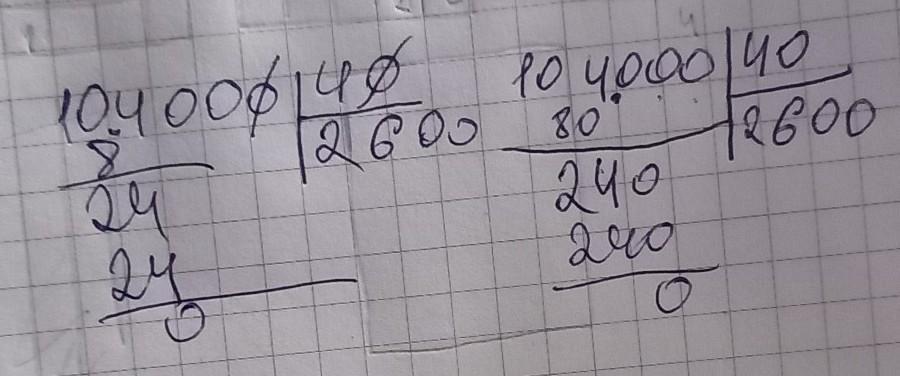 104000 | 40
8 | 2600
24
24
0
104000 | 40
80 | 2600
240
240
0